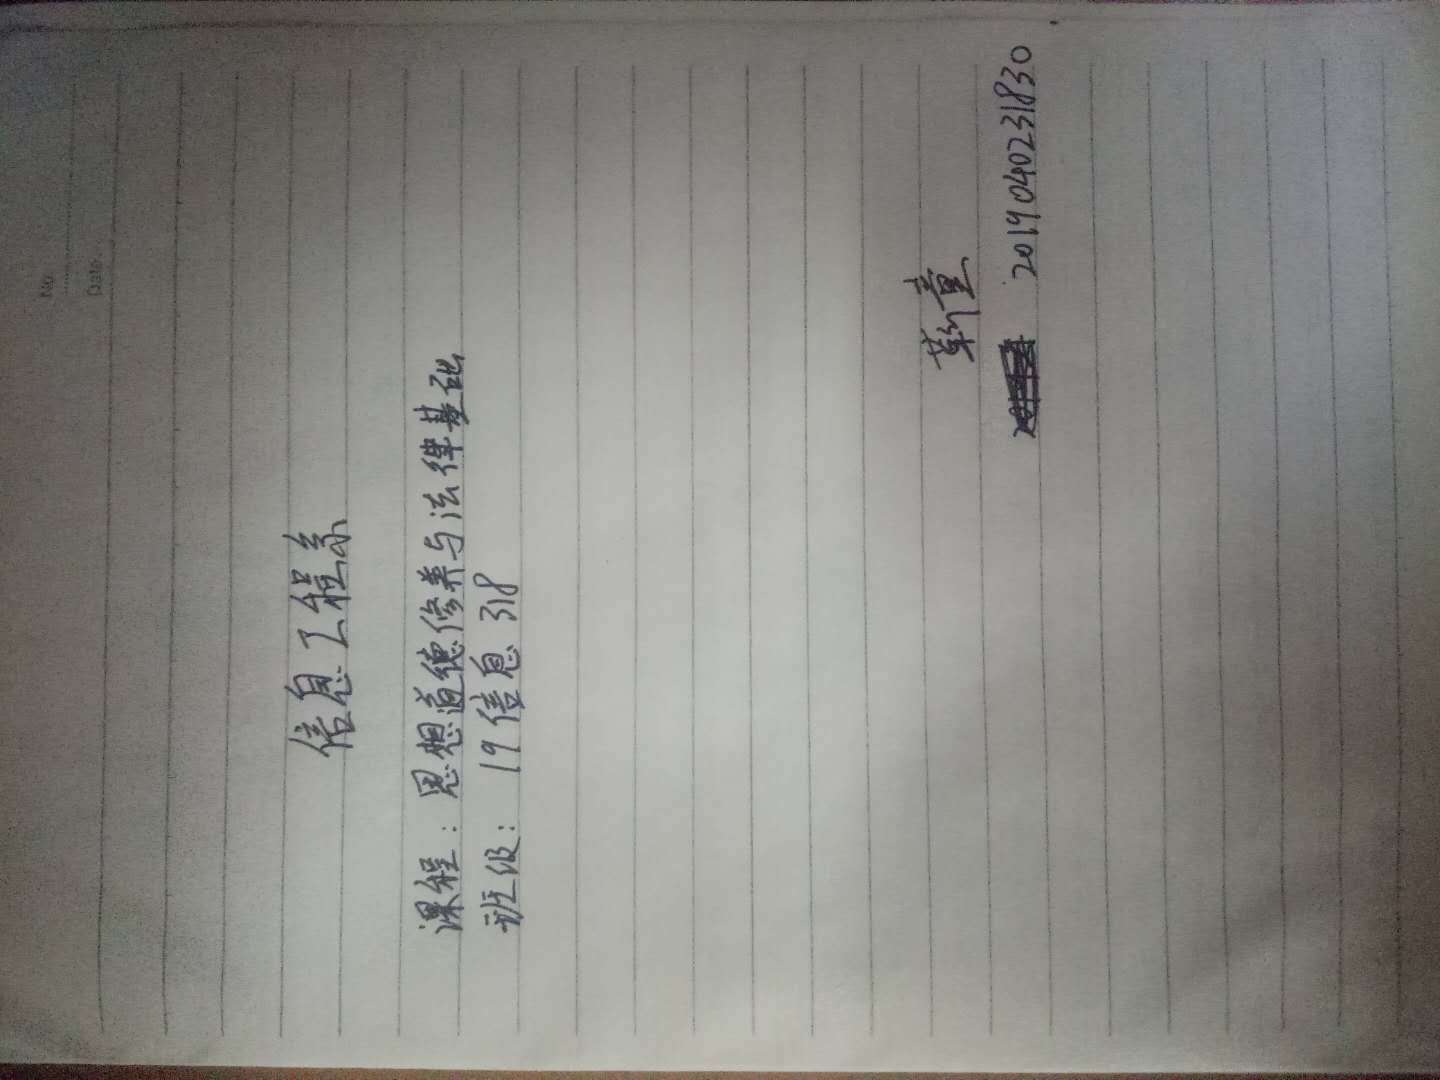 No.
Date.
信息工程系
课程：思想道德修养与法律基础
班级：19信息318
靳童
2019040231830